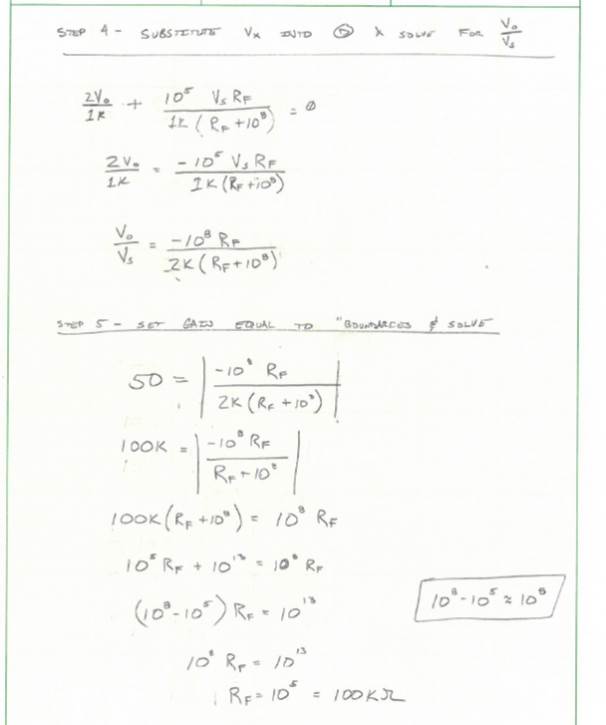 STEP 4 - SUBSTITUTE Vx INTO ⑤ & SOLVE FOR Vo/Vs
2Vo/1K + 10⁵ Vs RF / 1K (RF + 10⁸) = 0
2Vo/1K = -10⁵ Vs RF / 1K (RF + 10⁸)
Vo/Vs = -10⁸ RF / 2K (RF + 10⁸)
STEP 5 - SET GAIN EQUAL TO "BOUNDARIES & SOLVE
50 = | -10⁸ RF / 2K (RF + 10⁸) |
100K = | -10⁸ RF / RF + 10⁸ |
100K (RF + 10⁸) = 10⁸ RF
10⁵ RF + 10¹³ = 10⁸ RF
(10⁸ - 10⁵) RF = 10¹³
10⁸ - 10⁵ ≈ 10⁸
10⁸ RF = 10¹³
RF = 10⁵ = 100KΩ